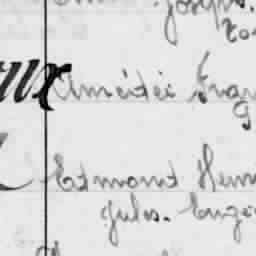 Joseph.
aux Amédée Fran
Edmond Henri
Jules. Eugè